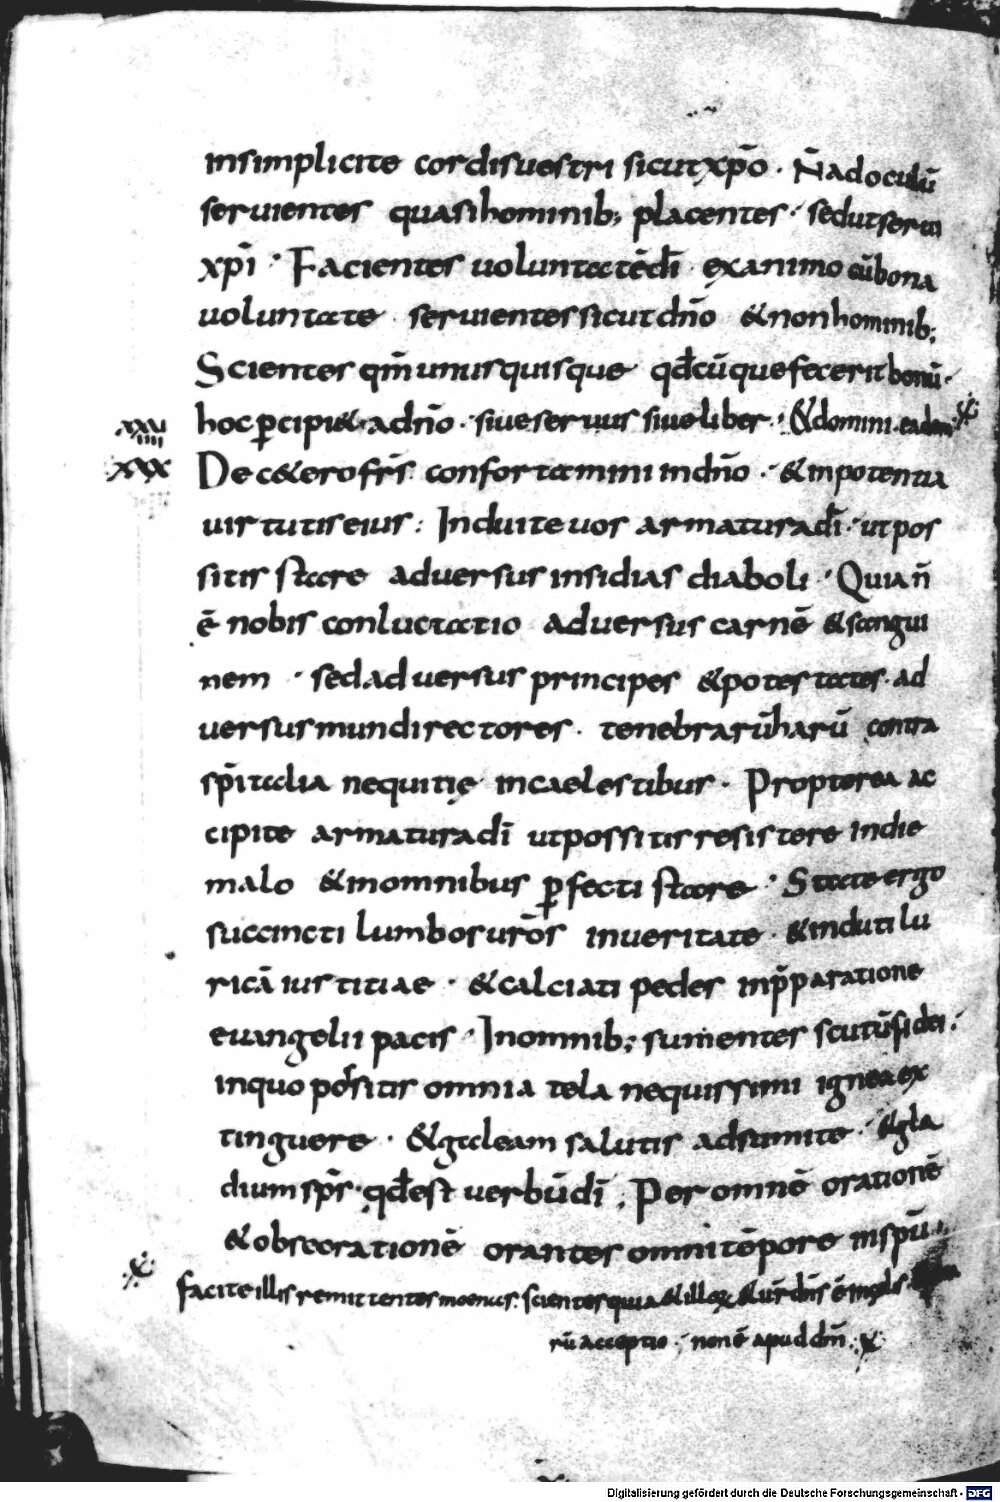 insimplicite cordisuestri sicutxp̄o · N̄adoculū
seruientes quasihominib; placentes · sedutserui
xp̄i · Facientes uoluntatēdī exanimo cūbona
uoluntate seruientessicutdn̄o &nonhominib;
Scientes qm̄unusquisque qd̄cūquefeceritbonū ·
hoc ꝑcipi&adn̄o · siueseruus siueliber · &domini · eadem
XXVIIII
XXX
Dec&erofr̄s confortaminiindn̄o · &inpotentia
uirtutiseius : Induiteuos armaturadī · utpos
sitis stare aduersusinsidias diaboli · Quian̄
ē nobis conluctatio aduersus carnē &sangui
nem · sedaduersus principes &potestates · ad
uersusmundirectores · tenebrarūharū contra
sp̄italia nequitię incaelestibus · Propterea ac
cipite armaturadī utpossitisresistere indie
malo &inomnibus ꝑfecti stare · Stateergo
succincti lumbosur̄os inueritate · &induti lu
ricā iustitiae · &calciati pedes inp̄paratione
euangelii pacis · Inomnib; sumentes scutūfidei ·
inquo possitis omnia tela nequissimi igneaex
tinguere · &galeam salutis adsumite · &gla
diumsp̄s · qd̄est uerbūdī ; Per omnē orationē
&obsecrationē orantes omnitēpore inspū ·
facite illis remittentes minas : scientesquia&illoꝝ &ur̄ dn̄s ē incęlis
rū acceptio · nonē apud dm̄ ·
Digitalisierung gefördert durch die Deutsche Forschungsgemeinschaft - DFG